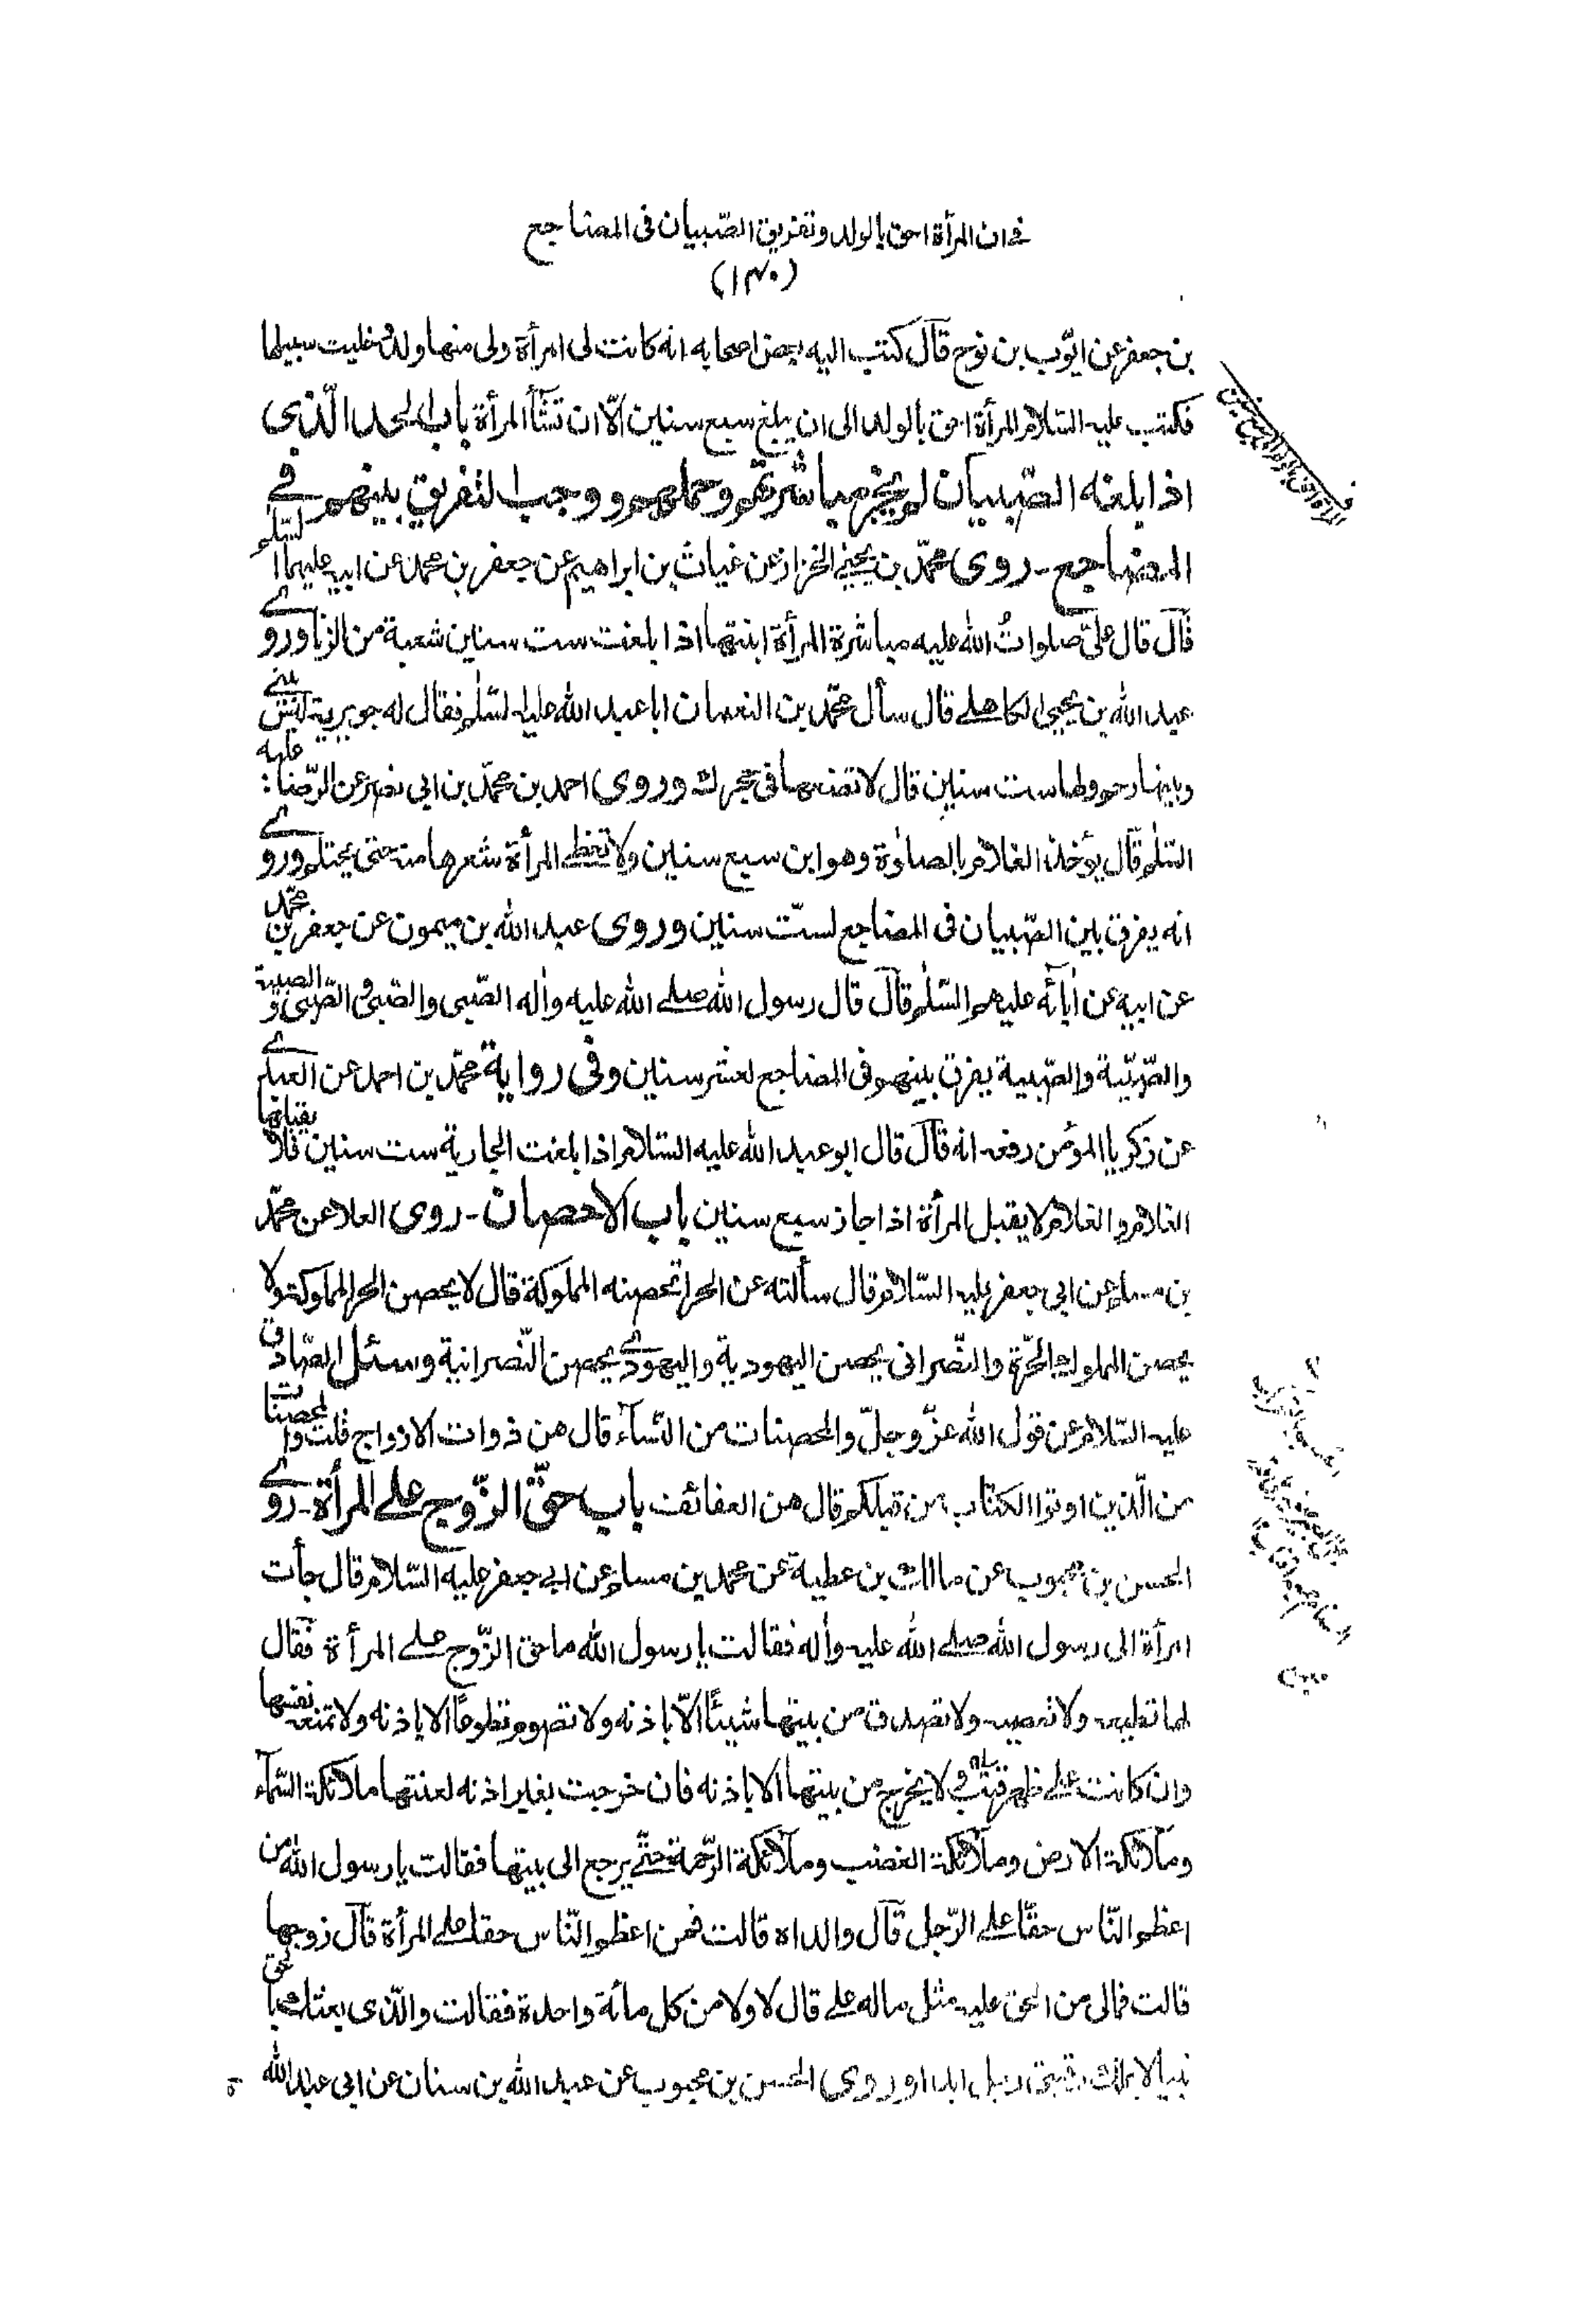 في ان المرأة احق بالولد وتفريق الصّبيان فى المضاجع
(١٤٠)
بن جعفر عن ايّوب بن نوح قاَل كتب اليه بعض اصحابه انه كانت لى امرأة ولى منها ولد وخليت سبيلها
فكتب عليه السّلام المرأة احق بالولد الى ان يبلغ سبع سنين الّا ان تشآء المرأة باب الحد الّذى
اذا بلغه الصّبيان لم يجز مباشرتهم وحملهم ووجب التفريق بينهم في
المضاجع - روى محمّد بن يحيى الخزاز عن غياث بن ابراهيم عن جعفر بن محمد عن ابيه عليهما السّلم
قاَل قال علىّ صلواتُ الله عليه مباشرة المرأة ابنتها اذا بلغت ست سنين شعبة من الزنا وروى
عبد الله بن يحيى الكاهلے قال سأل محمّد بن النعمان ابا عبد الله عليه السّلم فقال له جويرية ليس بينى
وبينها رحم ولها ست سنين قال لا تضعها فى حجرك وروى احمد بن محمّد بن ابى نصر عن الرّضا عليه
السّلم قاَل يؤخذ الغلام بالصلوٰة وهو ابن سبع سنين ولا تغطے المرأة شعرها منه حتى يحتلم وروى
انه يفرق بين الصّبيان فى المضاجع لستّ سنين وروى عبد الله بن ميمون عن جعفر بن محمّد
عن ابيه عن اٰبآئه عليهم السّلم قاَل قال رسول الله صلے الله عليه واٰله الصّبى والصّبى و الصّبى و الصبية
والصّبيّة والصّبية يفرق بينهم فى المضاجع لعشر سنين وفى رواية محمّد بن احمد عن العبيدى
عن زكريا المؤمن رفعه انه قاَل قال ابو عبد الله عليه السّلام اذا بلغت الجارية ست سنين فلا يقبلها
الغلام والغلام لا يقبل المرأة اذا جاز سبع سنين باب الاحصان - روى العلا عن محمّد
بن مسلم عن ابى جعفر عليه السّلام قال سألته عن الحر اتحصنه المملوكة قال لا يحصن الحر المملوكة ولا
يحصن المملوك الحرّة والنّصرانى يحصن اليهودية واليهودى يحصن النّصرانية وسئل الصّادق
عليه السّلام عن قول الله عزّ وجلّ والمحصنات من النّسآء قال هن ذوات الازواج قلت والمحصنات
من الّذين اوتوا الكتاب من قبلكم قال هن العفائف باب حقّ الزّوج علے المرأة - روى
الحسن بن محبوب عن مالك بن عطية عن محمد بن مسلم عن ابى جعفر عليه السّلام قال جأت
امرأة الى رسول الله صلے الله عليه واٰله فقالت يا رسول الله ما حق الزّوج علے المرأة فقال
لها تطيعه ولا تعصيه ولا تصدق من بيتها شيئًا الّا باذنه ولا تصوم تطوعًا الا باذنه ولا تمنعه نفسها
وان كانت علے ظهر قتب و لا يخرج من بيتها الا باذنه فان خرجت بغير اذنه لعنتها ملائكة السّمآء
وملآئكة الارض وملآئكة الغضب وملآئكة الرّحمة حتّے يرجع الى بيتها فقالت يا رسول الله من
اعظم النّاس حقًّا علے الرّجل قاَل والداه قالت فمن اعظم النّاس حقا علے المرأة قاَل زوجها
قالت فمالى من الحق عليه مثل ماله علے قال لا ولا من كل مأئة واحدة فقالت والّذى بعثك بالحق
نبيا لا يملك رقبتى رجل ابدا وروى الحسن بن محبوب عن عبد الله بن سنان عن ابى عبد الله